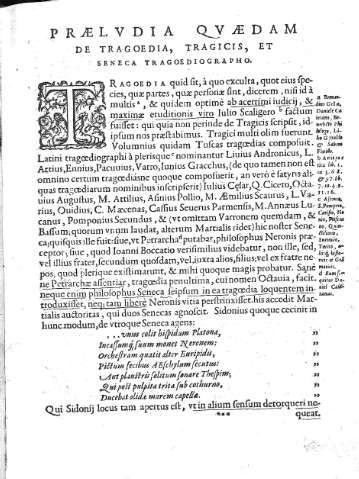 PRÆLVDIA QVÆDAM
DE TRAGOEDIA, TRAGICIS, ET
SENECA TRAGOEDIOGRAPHO.
TRAGOEDIA quid sit, à quo exculta, quot eius spe-
cies, quæ partes, quæ personæ sint, dicerem, nisi id à
multis, & quidem optimè ab acerrimi iudicij, &
maximæ eruditionis viro Iulio Scaligero factum
fuisset: qui quia non perinde de Tragicis scripsit, id-
ipsum nos præstabimus. Tragici multi olim fuerunt.
Volumnius quidam Tuscas tragœdias composuit.
Latini tragœdiographi à plerisque nominantur Liuius Andronicus, L.
Attius, Ennius, Pacuuius, Varro, Iunius Gracchus, (de quo tamen non est
omnino certum tragœdiásne quoque composuerit, an verò è fatyris ali-
quas tragœdiarum nominibus inscripserit) Iulius Cęsar, Q. Cicero, Octa-
uius Augustus, M. Attilius, Asinius Pollio, M. Æmilius Scaurus, L. Va-
rius, Ouidius, C. Mæcenas, Cassius Seuerus Parmensis, M. Annæus Lu-
canus, Pomponius Secundus, & (vt omittam Varronem quemdam, &
Bassum, quorum vnum laudat, alterum Martialis ridet) hic noster Sene-
ca; quisquis ille fuit: siue, vt Petrarcha putabat, philosophus Neronis præ-
ceptor, siue, quod Ioanni Boccatio verisimilius videbatur, non ille, sed,
vel illius frater, secundum quosdam, vel, iuxta alios, filius; vel ex fratre ne-
pos, quod plerique existimarunt, & mihi quoque magis probatur. Sanè
ne Petrarchæ assentiar, tragœdia penultima, cui nomen Octauia, facit.
neque enim philosophus Seneca seipsum in ea tragœdia loquentem in-
troduxisset, neq; tam liberè Neronis vitia perstrinxisset. his accedit Mar-
tialis auctoritas, qui duos Senecas agnoscit. Sidonius quoque cecinit in
hunc modum, de vtroque Seneca agens:
...vnus colit hispidum Platona,
Incassumq́; suum monet Neronem:
Orchestram quatit alter Euripidis,
Pictum fæcibus Æschylum secutus:
Aut plaustris solitum sonare Thespim,
Qui post pulpita trita sub cothurno,
Ducebat olidæ marem capellæ.
Qui Sidonij locus tam apertus est, vt in alium sensum detorqueri ne-
queat.